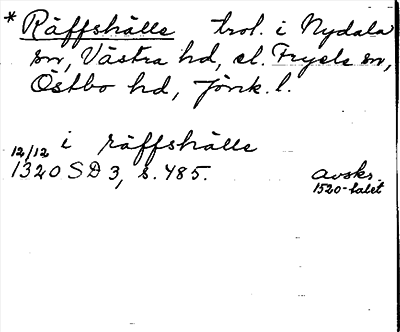 * Räffshälle trol. i Nydala
sn, Västra hd, el. Fryele sn,
Östbo hd, Jönk. l.
12/12 i räffshälle
1320 SD 3, s. 485. avskr.
1520-talet